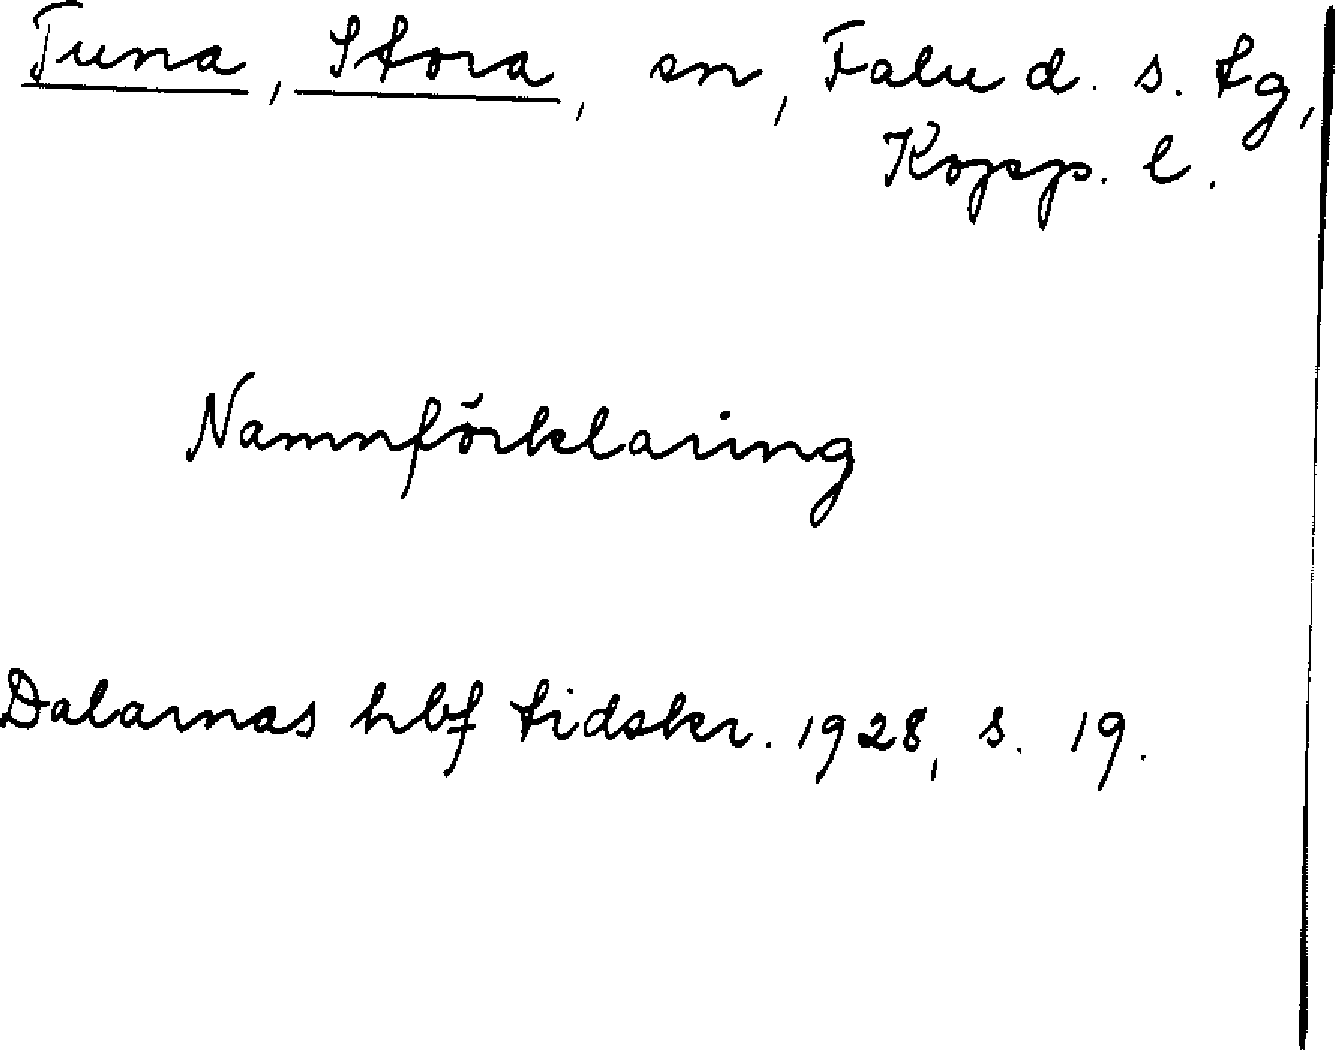 Tuna, Stora, sn, Falu d. s. tg,
Kopp. l.
Namnförklaring
Dalarnas hbf tidskr. 1928, s. 19.